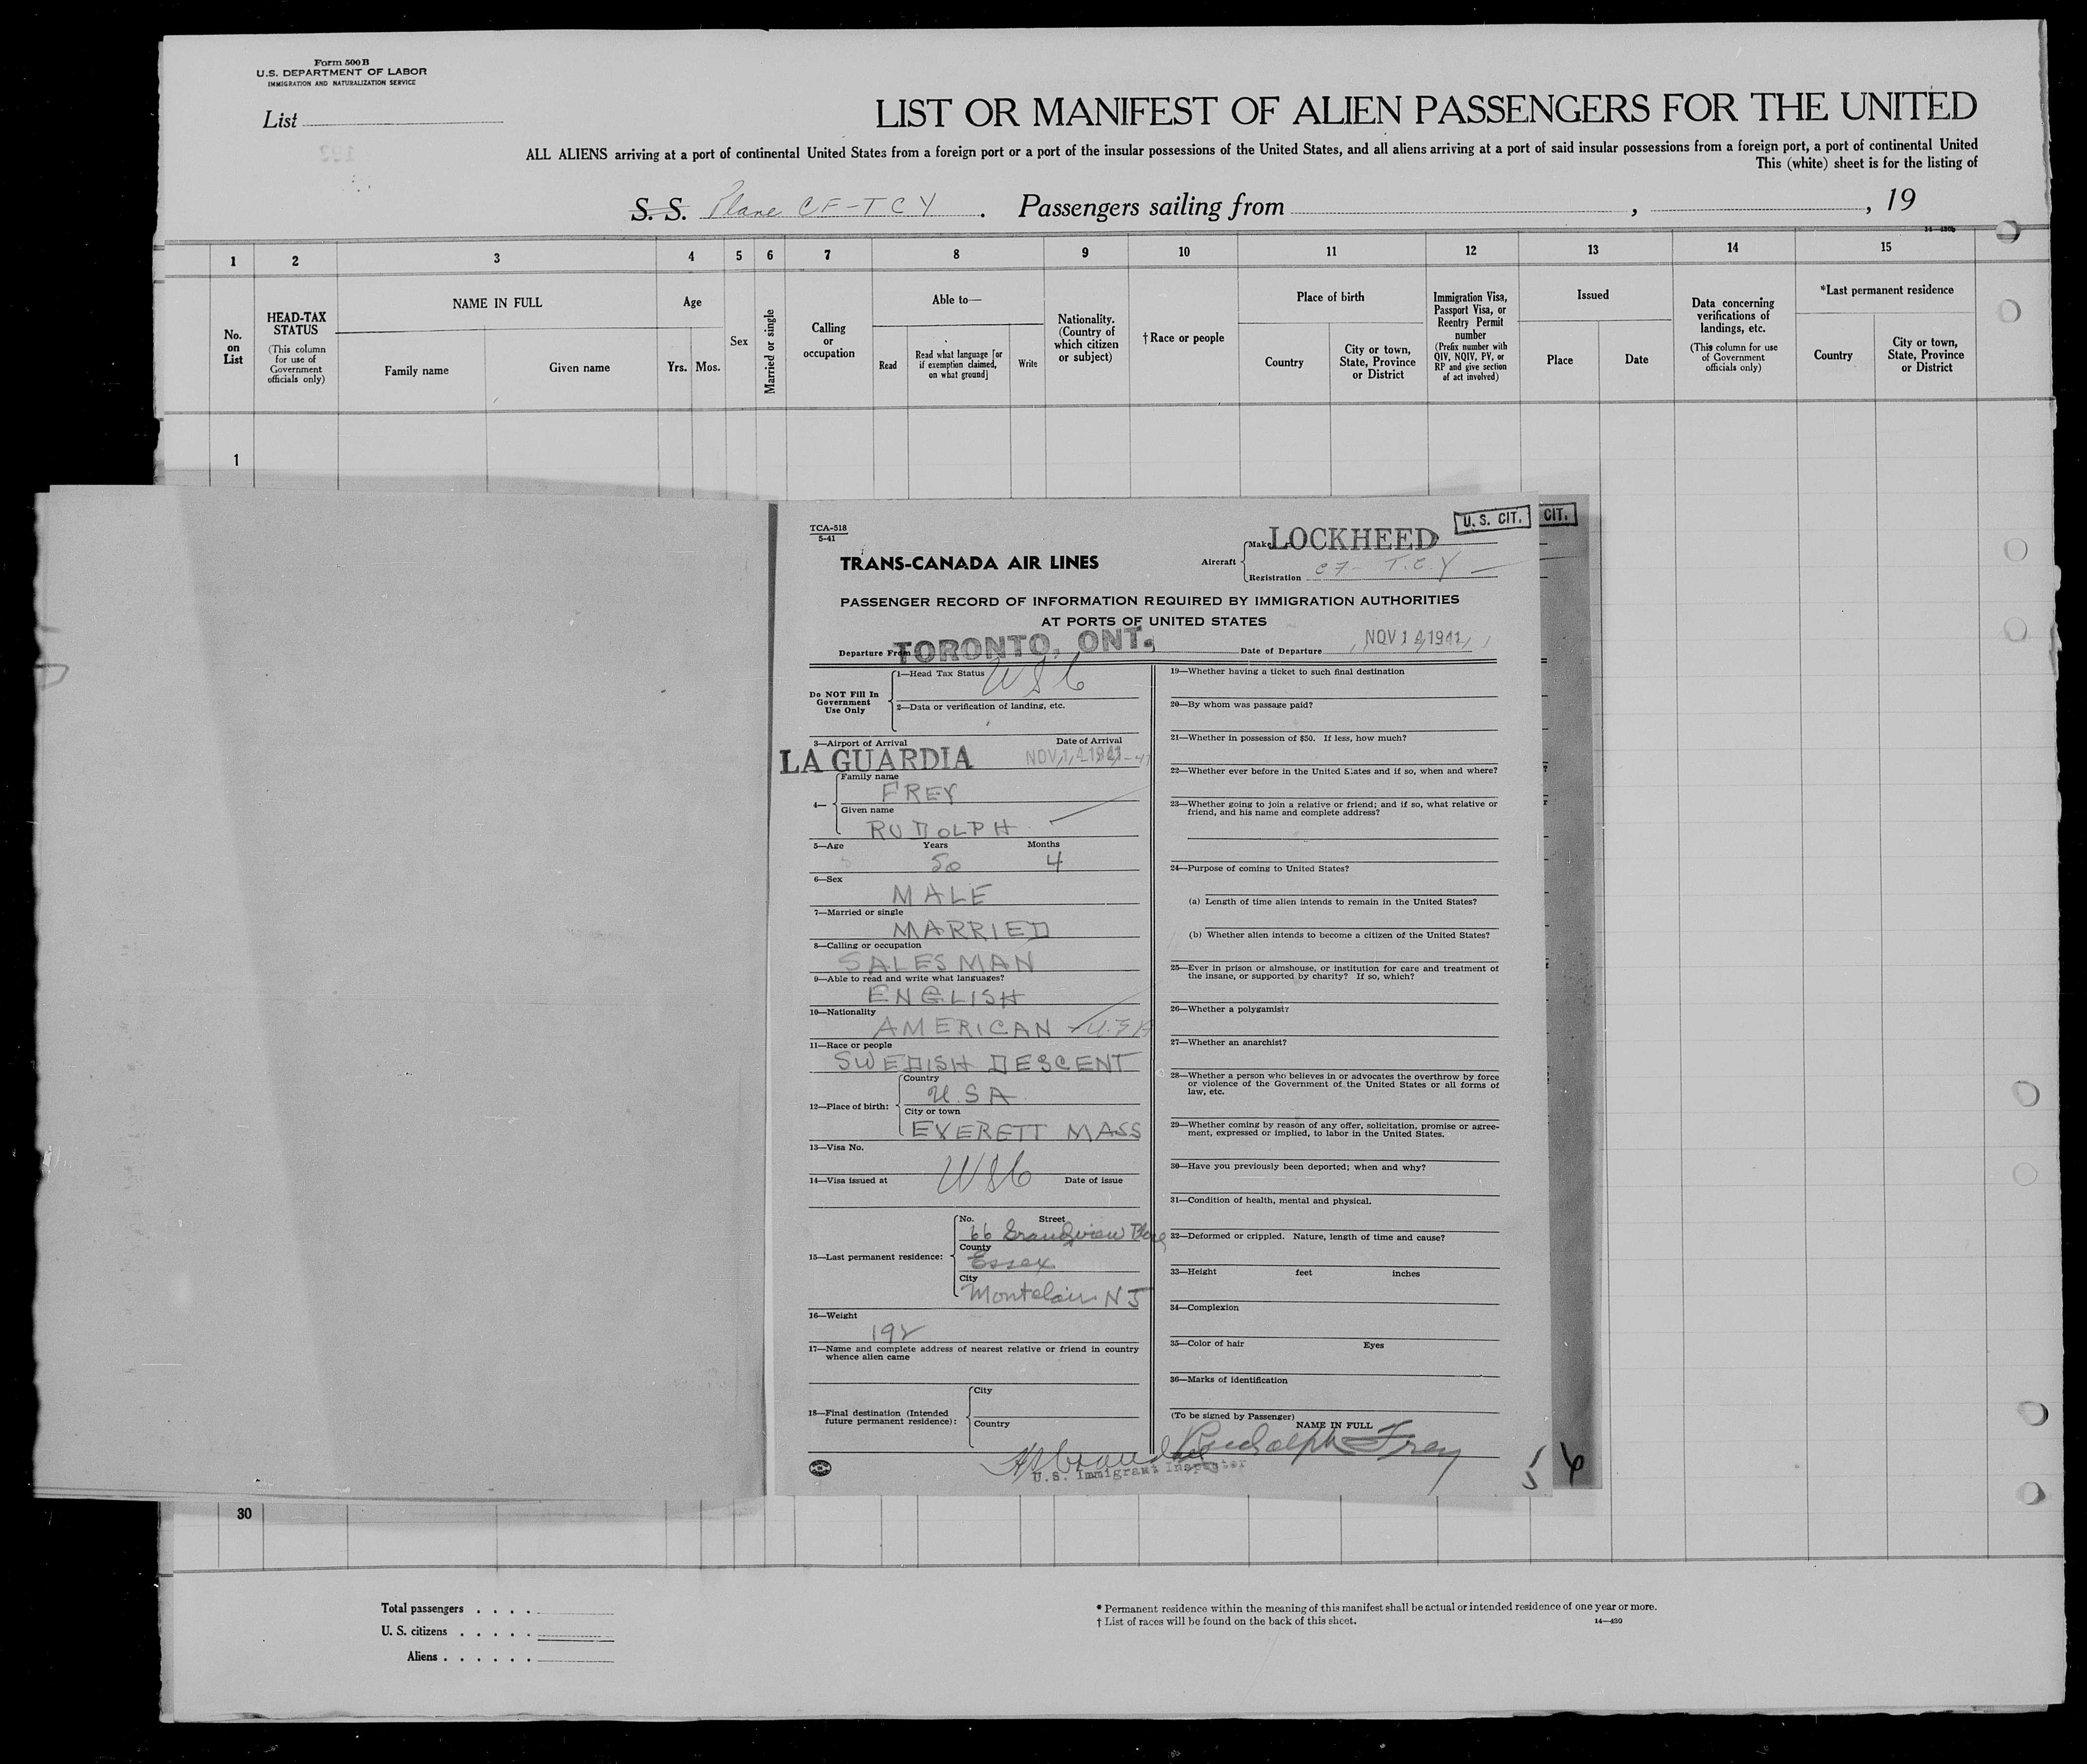 Form 500 B
U.S. DEPARTMENT OF LABOR
IMMIGRATION AND NATURALIZATION SERVICE
List
LIST OR MANIFEST OF ALIEN PASSENGERS FOR THE UNITED
ALL ALIENS arriving at a port of continental United States from a foreign port or a port of the insular possessions of the United States, and all aliens arriving at a port of said insular possessions from a foreign port, a port of continental United
This (white) sheet is for the listing of
S. S. Plane CF-TCY . Passengers sailing from , , 19
14—430b
1 2 3 4 5 6 7 8 9 10 11 12 13 14 15
No. on List
HEAD-TAX STATUS
(This column for use of Government officials only)
NAME IN FULL
Family name
Given name
Age
Yrs. Mos.
Sex
Married or single
Calling or occupation
Able to—
Read
Read what language [or if exemption claimed, on what ground]
Write
Nationality. (Country of which citizen or subject)
†Race or people
Place of birth
Country
City or town, State, Province or District
Immigration Visa, Passport Visa, or Reentry Permit number
(Prefix number with QIV, NQIV, PV, or RP and give section of act involved)
Issued
Place
Date
Data concerning verifications of landings, etc.
(This column for use of Government officials only)
*Last permanent residence
Country
City or town, State, Province or District
1
TCA-518
5-41
U. S. CIT.
CIT.
TRANS-CANADA AIR LINES
Aircraft
Make LOCKHEED
Registration CF- T.C.Y
PASSENGER RECORD OF INFORMATION REQUIRED BY IMMIGRATION AUTHORITIES
AT PORTS OF UNITED STATES
Departure From TORONTO, ONT. Date of Departure NOV 14 1941
Do NOT Fill In Government Use Only
1—Head Tax Status
2—Data or verification of landing, etc.
3—Airport of Arrival Date of Arrival
LA GUARDIA NOV 14 1941
4—
Family name
FREY
Given name
RUDOLPH
5—Age Years Months
50 4
6—Sex
MALE
7—Married or single
MARRIED
8—Calling or occupation
SALESMAN
9—Able to read and write what languages?
ENGLISH
10—Nationality
AMERICAN
11—Race or people
SWEDISH DESCENT
12—Place of birth:
Country
U.S A
City or town
EVERETT MASS
13—Visa No.
14—Visa issued at Date of issue
15—Last permanent residence:
No. Street
66 Grandview Place
County
Essex
City
Montclair N J
16—Weight
192
17—Name and complete address of nearest relative or friend in country
whence alien came
18—Final destination (Intended
future permanent residence):
City
Country
19—Whether having a ticket to such final destination
20—By whom was passage paid?
21—Whether in possession of $50. If less, how much?
22—Whether ever before in the United States and if so, when and where?
23—Whether going to join a relative or friend; and if so, what relative or
friend, and his name and complete address?
24—Purpose of coming to United States?
(a) Length of time alien intends to remain in the United States?
(b) Whether alien intends to become a citizen of the United States?
25—Ever in prison or almshouse, or institution for care and treatment of
the insane, or supported by charity? If so, which?
26—Whether a polygamist?
27—Whether an anarchist?
28—Whether a person who believes in or advocates the overthrow by force
or violence of the Government of the United States or all forms of
law, etc.
29—Whether coming by reason of any offer, solicitation, promise or agree-
ment, expressed or implied, to labor in the United States.
30—Have you previously been deported; when and why?
31—Condition of health, mental and physical.
32—Deformed or crippled. Nature, length of time and cause?
33—Height feet inches
34—Complexion
35—Color of hair Eyes
36—Marks of identification
(To be signed by Passenger)
NAME IN FULL
Rudolph Frey
U.S. Immigrant Inspector
5 6
30
Total passengers
U. S. citizens
Aliens
* Permanent residence within the meaning of this manifest shall be actual or intended residence of one year or more.
† List of races will be found on the back of this sheet.
14—430